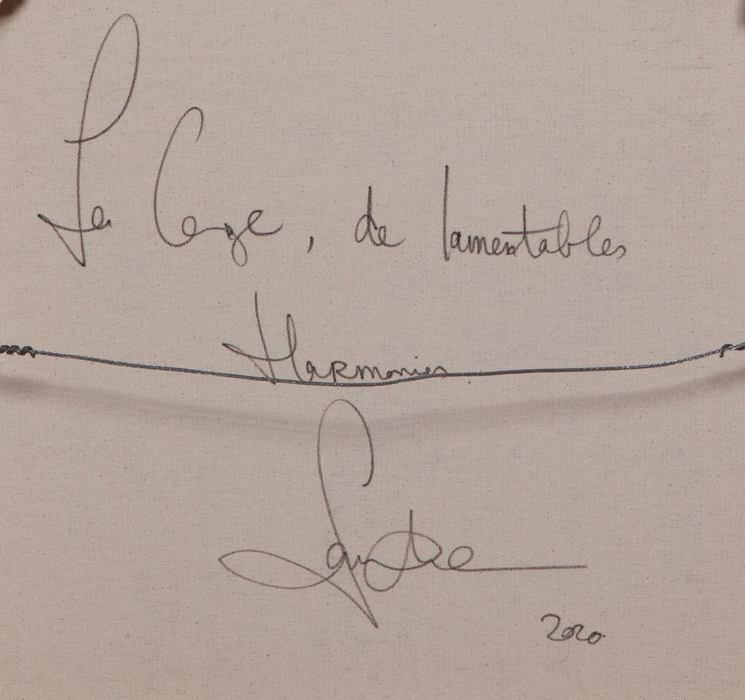 La Cage, de lamentables
Harmonies
2020